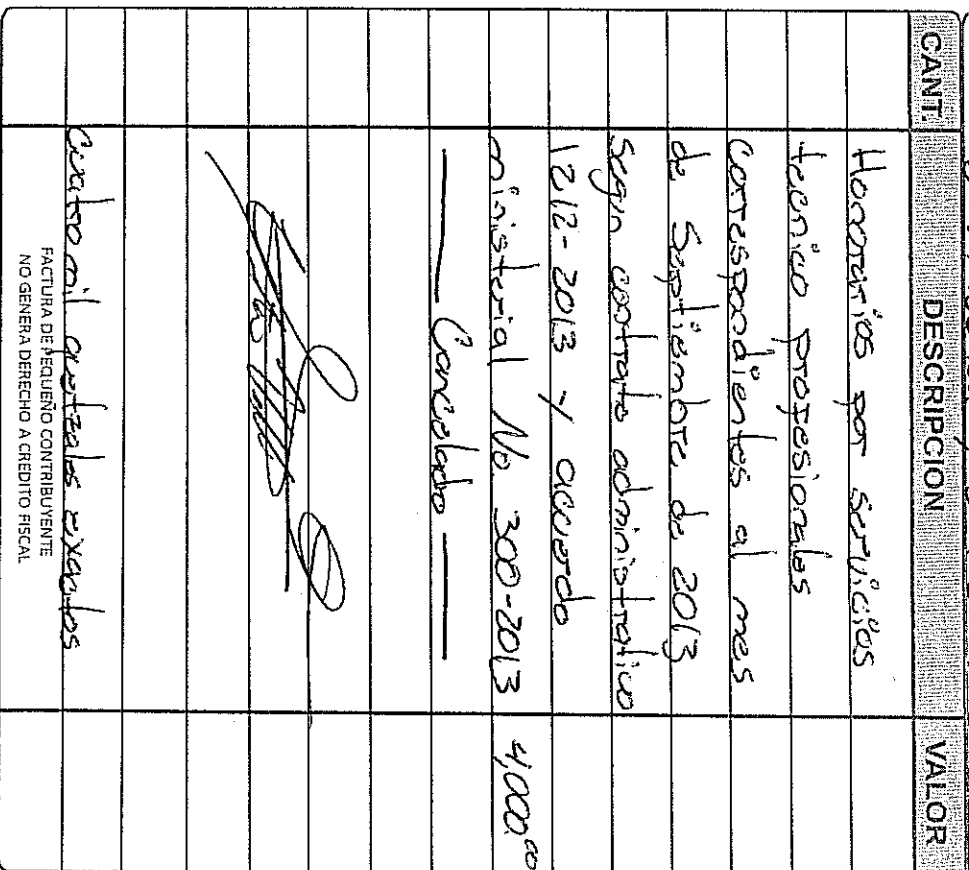 CANT. DESCRIPCION VALOR
Honorarios por servicios
tecnico profesionales
correspondientes al mes
de Septiembre de 2013
segun contrato administrativo
1212-2013 y acuerdo
ministerial No. 300-2013 4,000.00
Cancelado
Cuatro mil quetzales exactos
FACTURA DE PEQUEÑO CONTRIBUYENTE
NO GENERA DERECHO A CREDITO FISCAL